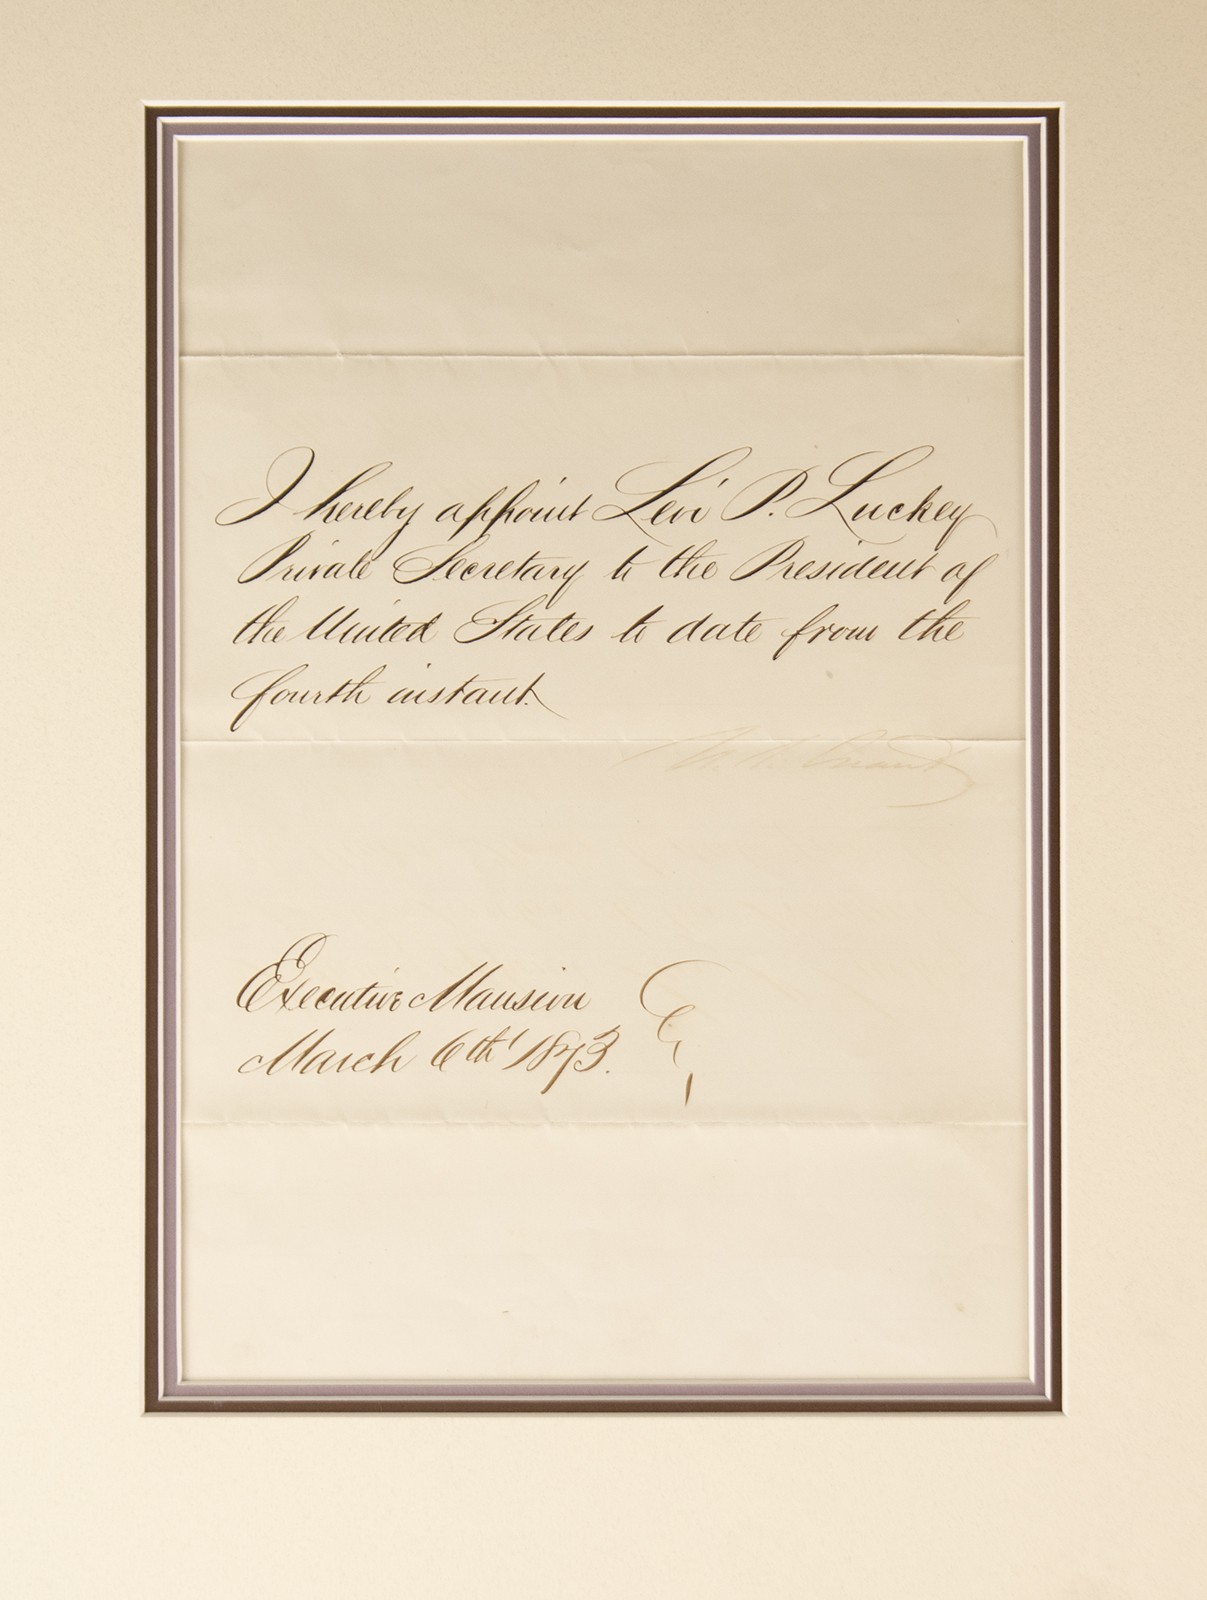 I hereby appoint Levi P. Luckey
Private Secretary to the President of
the United States to date from the
fourth instant.
U. S. Grant
Executive Mansion
March 6th 1873.